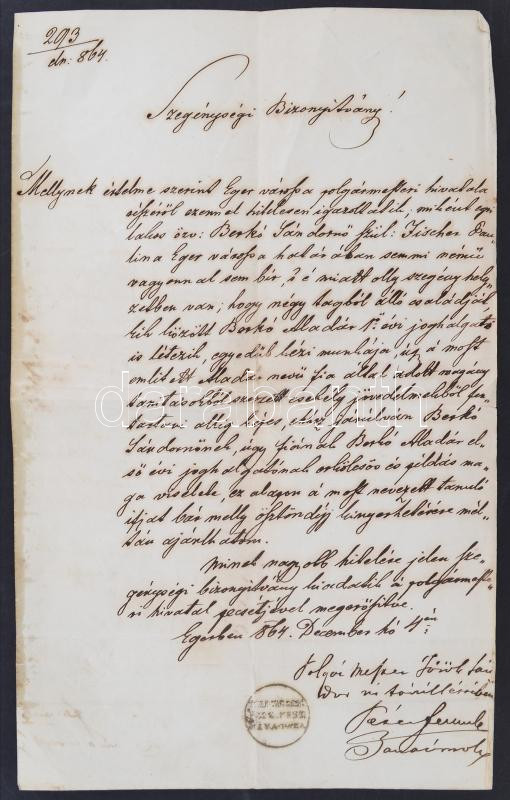 293
dn: 864.
Szegénységi Bizonyitvány!
Mellynek értelme szerint Eger városa polgármesteri hivatala
részéről ezennel hitelesen igazoltatik, miként egri
lakos özv: Berkó Sándornő szül: Fischer Pau-
lina Eger városa határában semmi némű
vagyonnal sem bir, 's é miatt olly szegény hely-
zetben van, hogy négy tagból álló családja
tik között Berkó Aladár 1ső évi joghalgató
is létezik, egyedüli kézi munkája, 's a most
emlitett Aladár nevű fia által adott magány
tanitásokból szerzett csekély jövedelmekből fen-
tartani alig képes, tanúlván Berkó
Sándornőnek, úgy fiának Berkó Aladár el-
ső évi joghalgatónak erkölcsös és példás ma-
ga viselete, ez alapon á most nevezett tanuló
ifjat bár melly ösztöndij kinyerhetésére mél-
tán ajánlhatom.
Minek nagyobb hitelére jelen sze-
génységi bizonyitvány kiadatik á polgármeste-
ri hivatal pecsétjével megerősitve.
Egerben 864. December hó 4én
Polgár Mester Török Sán
dor úr távollétében
darabanth